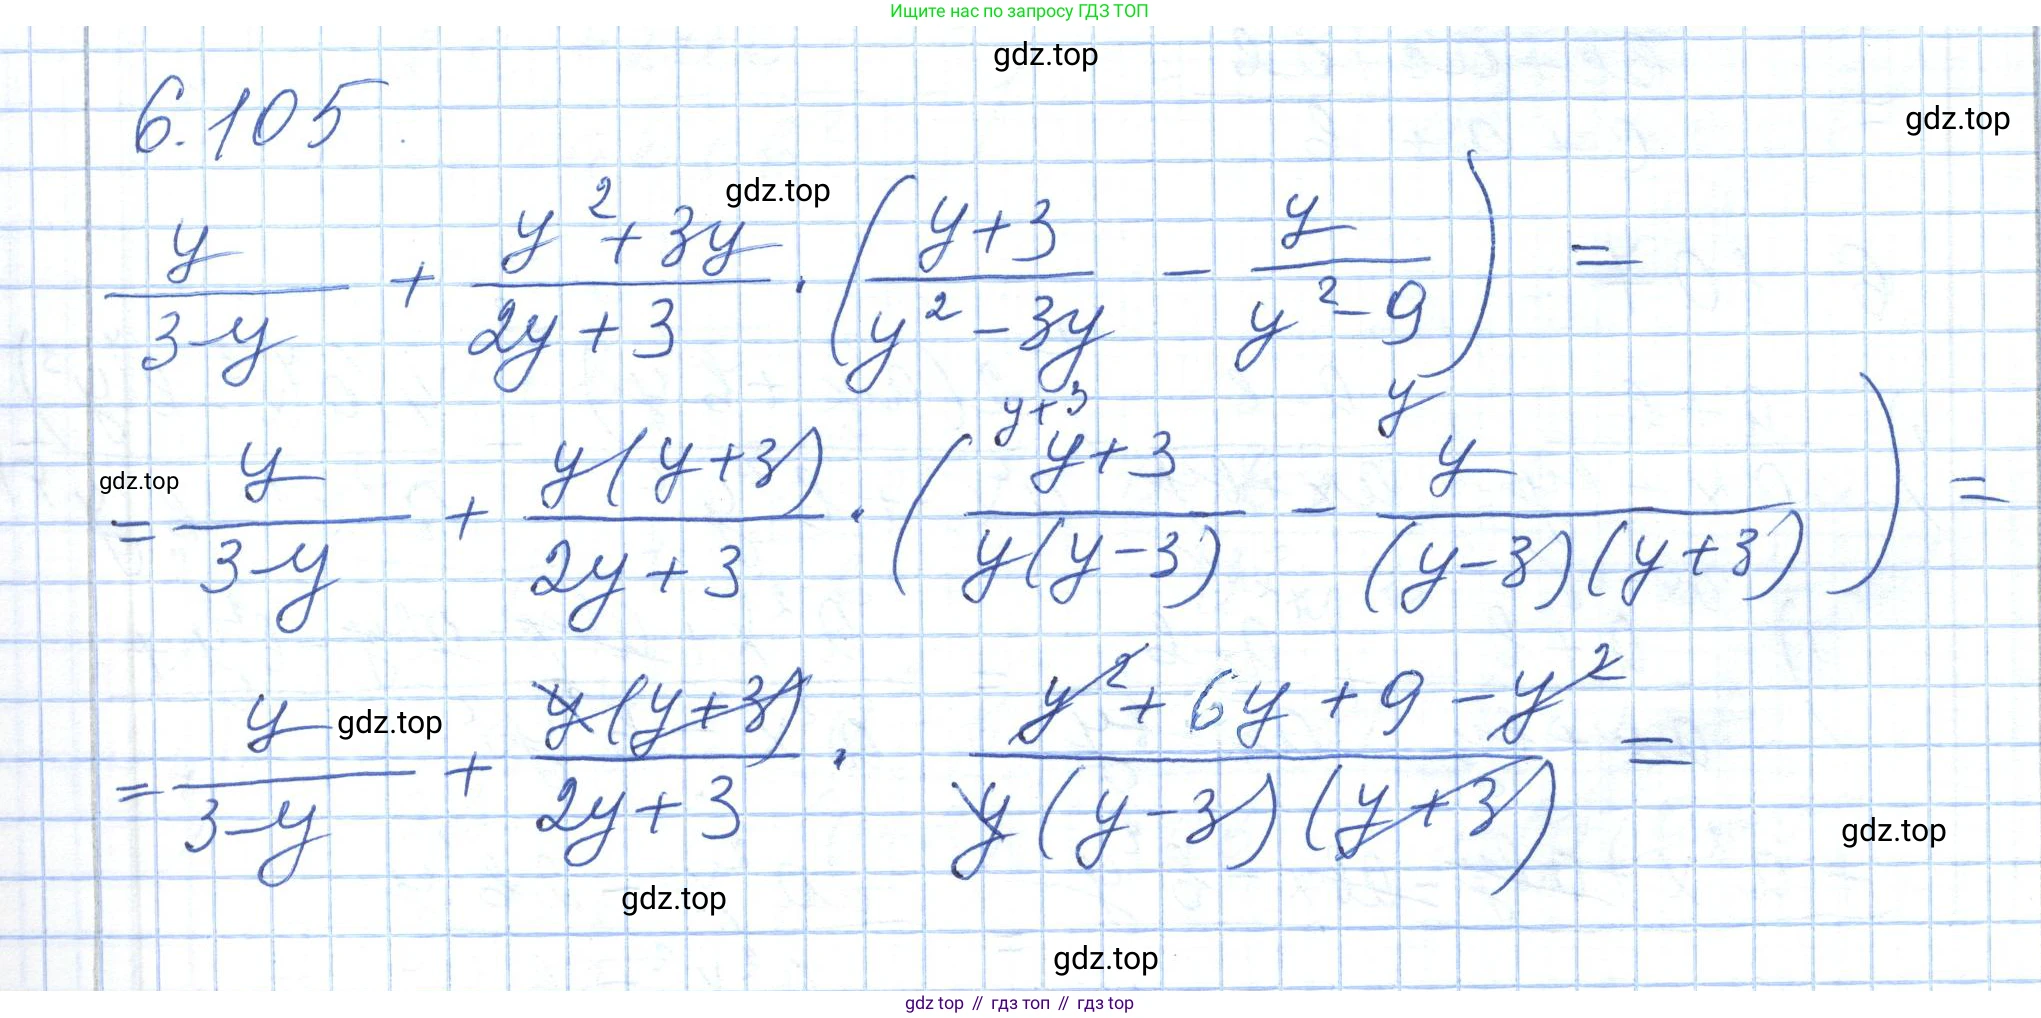 Ищите нас по запросу ГДЗ ТОП
gdz.top
6.105.
gdz.top
gdz.top
y/(3-y) + (y²+3y)/(2y+3) · ((y+3)/(y²-3y) - y/(y²-9)) =
y+3 y
gdz.top
= y/(3-y) + y(y+3)/(2y+3) · ((y+3)/(y(y-3)) - y/((y-3)(y+3))) =
gdz.top
= y/(3-y) + y(y+3)/(2y+3) · (y²+6y+9-y²)/(y(y-3)(y+3)) =
gdz.top
gdz.top
gdz.top
gdz top // гдз топ // gdz top